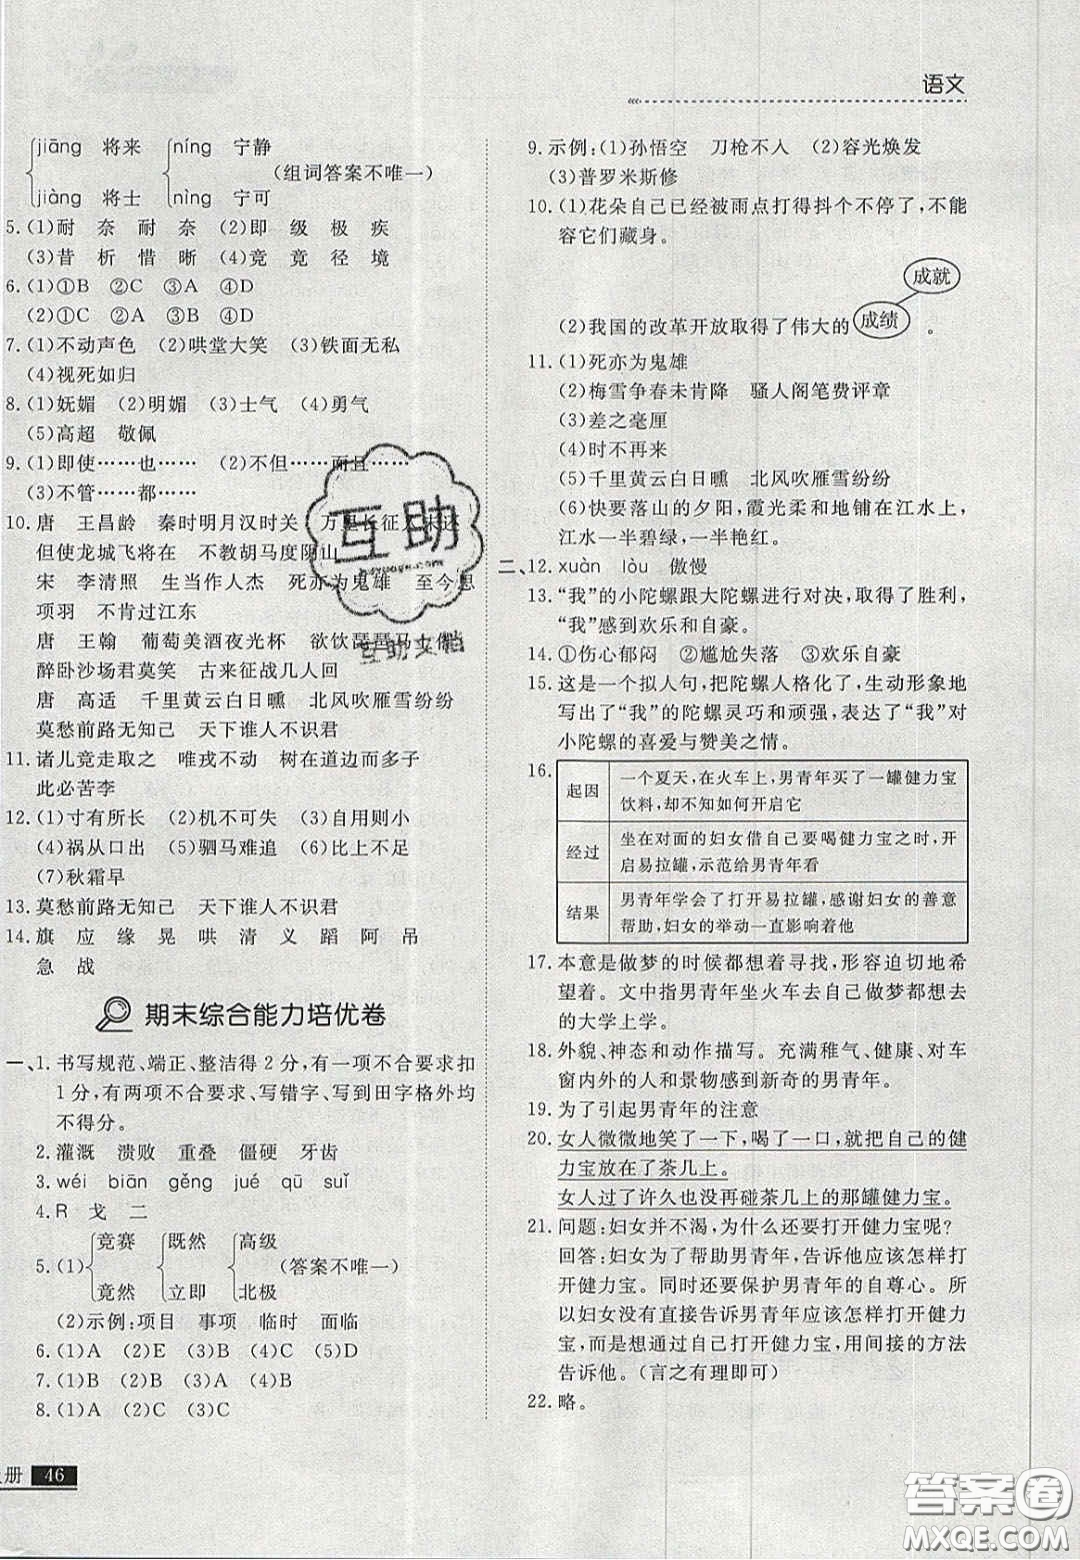 语文
jiāng 将来 níng 宁静
(组词答案不唯一)
jiàng 将士 nìng 宁可
5.(1)耐 奈 耐 奈 (2)即 级 极 疾
(3)昔 析 惜 晰 (4)竞 竟 径 境
6.(1)①B ②C ③A ④D
(2)①C ②A ③B ④D
7.(1)不动声色 (2)哄堂大笑 (3)铁面无私
(4)视死如归
8.(1)妩媚 (2)明媚 (3)士气 (4)勇气
(5)高超 敬佩
9.(1)即使……也…… (2)不但……而且……
(3)不管……都……
10.唐 王昌龄 秦时明月汉时关 万里长征人未还
但使龙城飞将在 不教胡马度阴山
宋 李清照 生当作人杰 死亦为鬼雄 至今思
项羽 不肯过江东
唐 王翰 葡萄美酒夜光杯 欲饮琵琶马上催
醉卧沙场君莫笑 古来征战几人回
唐 高适 千里黄云白日曛 北风吹雁雪纷纷
莫愁前路无知己 天下谁人不识君
11.诸儿竞走取之 唯戎不动 树在道边而多子
此必苦李
12.(1)寸有所长 (2)机不可失 (3)自用则小
(4)祸从口出 (5)驷马难追 (6)比上不足
(7)秋霜早
13.莫愁前路无知己 天下谁人不识君
14.旗 应 缘 晃 哄 清 义 蹈 阿 吊
急 战
期末综合能力培优卷
一、1.书写规范、端正、整洁得2分,有一项不合要求扣
1分,有两项不合要求、写错字、写到田字格外均
不得分。
2.灌溉 溃败 重叠 僵硬 牙齿
3.wéi biān gěng jué qū suǐ
4.R 戈 二
竞赛 既然 高级
5.(1) (答案不唯一)
竟然 立即 北极
(2)示例:项目 事项 临时 面临
6.(1)A (2)E (3)B (4)C (5)D
7.(1)B (2)B (3)C (4)A
8.(1)A (2)C (3)C
9.示例:(1)孙悟空 刀枪不入 (2)容光焕发
(3)普罗米斯修
10.(1)花朵自己已经被雨点打得抖个不停了,不能
容它们藏身。
成就
(2)我国的改革开放取得了伟大的成绩。
11.(1)死亦为鬼雄
(2)梅雪争春未肯降 骚人阁笔费评章
(3)差之毫厘
(4)时不再来
(5)千里黄云白日曛 北风吹雁雪纷纷
(6)快要落山的夕阳,霞光柔和地铺在江水上,
江水一半碧绿,一半艳红。
二、12.xuàn lòu 傲慢
13.“我”的小陀螺跟大陀螺进行对决,取得了胜利,
“我”感到欢乐和自豪。
14.①伤心郁闷 ②尴尬失落 ③欢乐自豪
15.这是一个拟人句,把陀螺人格化了,生动形象地
写出了“我”的陀螺灵巧和顽强,表达了“我”对
小陀螺的喜爱与赞美之情。
16.起因 一个夏天,在火车上,男青年买了一罐健力宝
饮料,却不知如何开启它
经过 坐在对面的妇女借自己要喝健力宝之时,开
启易拉罐、示范给男青年看
结果 男青年学会了打开易拉罐,感谢妇女的善意
帮助,妇女的举动一直影响着他
17.本意是做梦的时候都想着寻找,形容迫切地希
望着。文中指男青年坐火车去自己做梦都想去
的大学上学。
18.外貌、神态和动作描写。充满稚气、健康、对车
窗内外的人和景物感到新奇的男青年。
19.为了引起男青年的注意
20.女人微微地笑了一下,喝了一口,就把自己的健
力宝放在了茶几上。
女人过了许久也没再碰茶几上的那罐健力宝。
21.问题:妇女并不渴,为什么还要打开健力宝呢?
回答:妇女为了帮助男青年,告诉他应该怎样打
开健力宝。同时还要保护男青年的自尊心。所
以妇女没有直接告诉男青年应该怎样打开健力
宝,而是想通过自己打开健力宝,用间接的方法
告诉他。(言之有理即可)
22.略。
册 46
互助
互助文档
答案圈
MXQE.COM